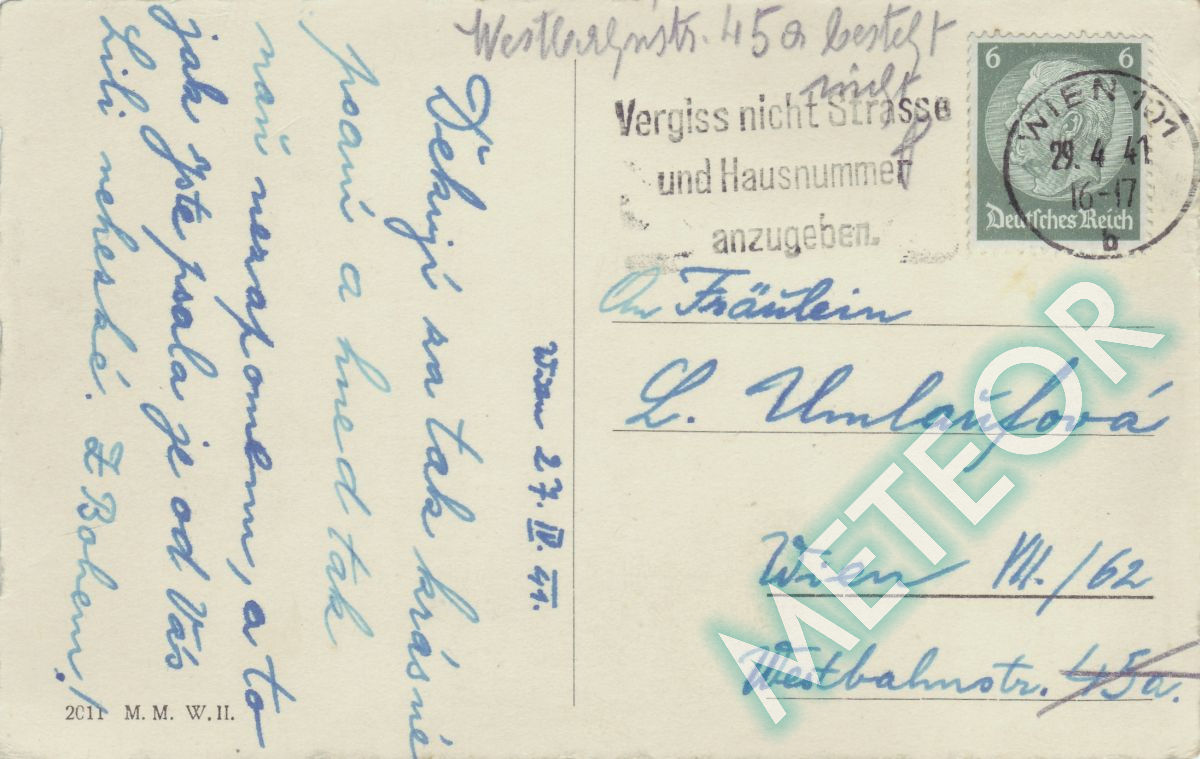 Westbahnstr. 45a besteht
nicht
6 6
Deutsches Reich
WIEN 101
29. 4 41
16-17
b
Vergiss nicht Strasse
und Hausnummer
anzugeben.
An Fräulein
L. Umlaufová
Wien VII./62
Westbahnstr. 45a.
METEOR
Wien 27. IV. 41.
Děkuji za tak krásné
psaní a hned tak
naň nezapomenu, a to
jak jste psala je od Vás
Lili nehezké. Z Bohem!
2011 M. M. W. II.